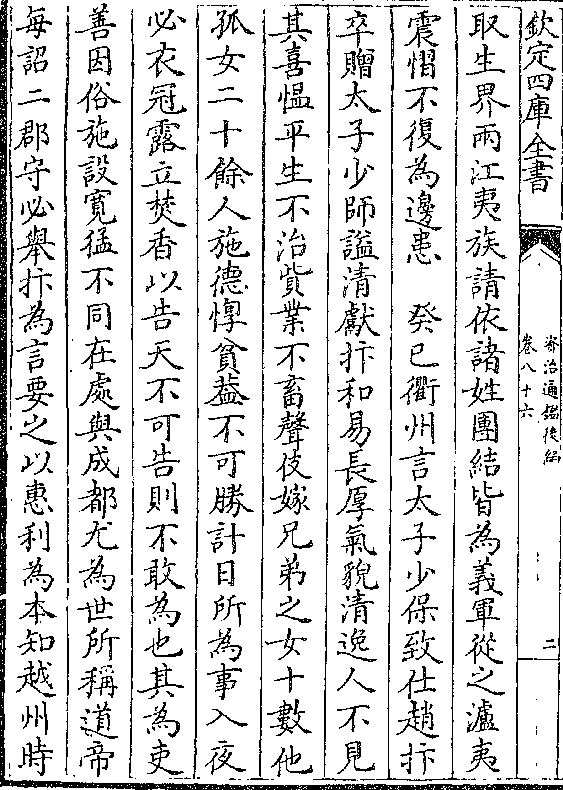 欽定四庫全書
資治通鑑後編
卷八十六
二
取生界兩江夷族請依諸姓團結皆為義軍從之瀘夷
震慴不復為邊患　癸巳衢州言太子少保致仕趙抃
卒贈太子少師諡清獻抃和易長厚氣貌清逸人不見
其喜愠平生不治貲業不畜聲伎嫁兄弟之女十數他
孤女二十餘人施德惸貧葢不可勝計日所為事入夜
必衣冠露立焚香以告天不可告則不敢為也其為吏
善因俗施設寛猛不同在處與成都尤為世所稱道帝
每詔二郡守必舉抃為言要之以惠利為本知越州時